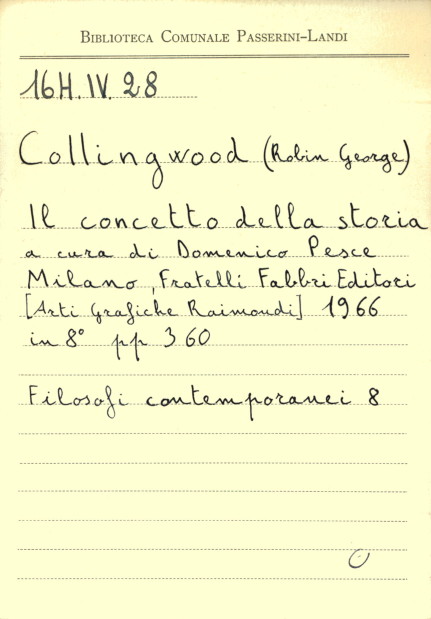 Biblioteca Comunale Passerini-Landi
16H.IV.28
Collingwood (Robin George)
Il concetto della storia
a cura di Domenico Pesce
Milano, Fratelli Fabbri Editori
[Arti Grafiche Raimondi] 1966
in 8° pp 360
Filosofi contemporanei 8